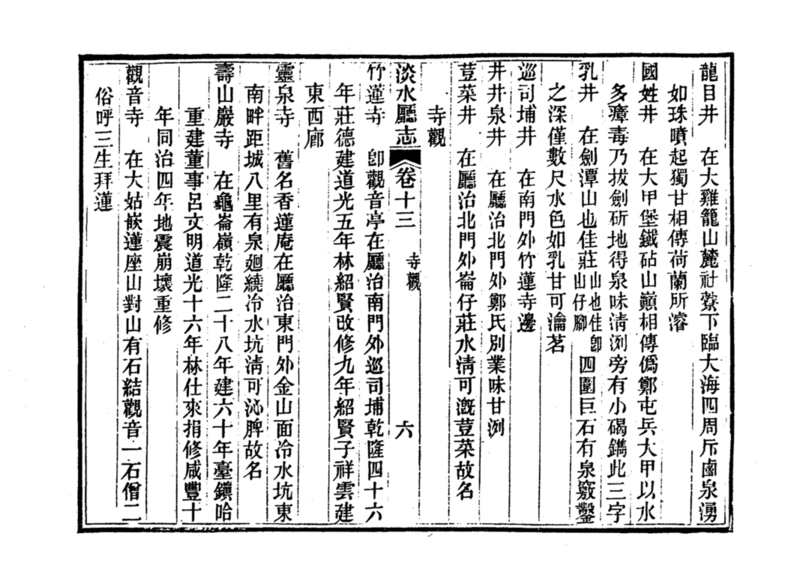 龍目井　在大雞籠山麓社藔下臨大海四周斥鹵泉湧
如珠噴起獨甘相傳荷蘭所濬
國姓井　在大甲堡鐵砧山巔相傳僞鄭屯兵大甲以水
多瘴毒乃拔劍斫地得泉味清洌旁有小碣鐫此三字
乳井　在劍潭山也佳莊山也佳卽山仔腳四圍巨石有泉竅鑿
之深僅數尺水色如乳甘可瀹茗
巡司埔井　在南門外竹蓮寺邊
井井泉井　在廳治北門外鄭氏別業味甘洌
荳菜井　在廳治北門外崙仔莊水清可漑荳菜故名
寺觀
淡水廳志　卷十三　寺觀　六
竹蓮寺　卽觀音亭在廳治南門外巡司埔乾隆四十六
年莊德建道光五年林紹賢改修九年紹賢子祥雲建
東西廊
靈泉寺　舊名香蓮庵在廳治東門外金山面冷水坑東
南畔距城八里有泉廻繞冷水坑清可沁脾故名
壽山巖寺　在龜崙嶺乾隆二十八年建六十年臺鎮哈
重建董事呂文明道光十六年林仕來捐修咸豐十
年同治四年地震崩壞重修
觀音寺　在大姑嵌蓮座山對山有石結觀音一石僧二
俗呼三生拜蓮